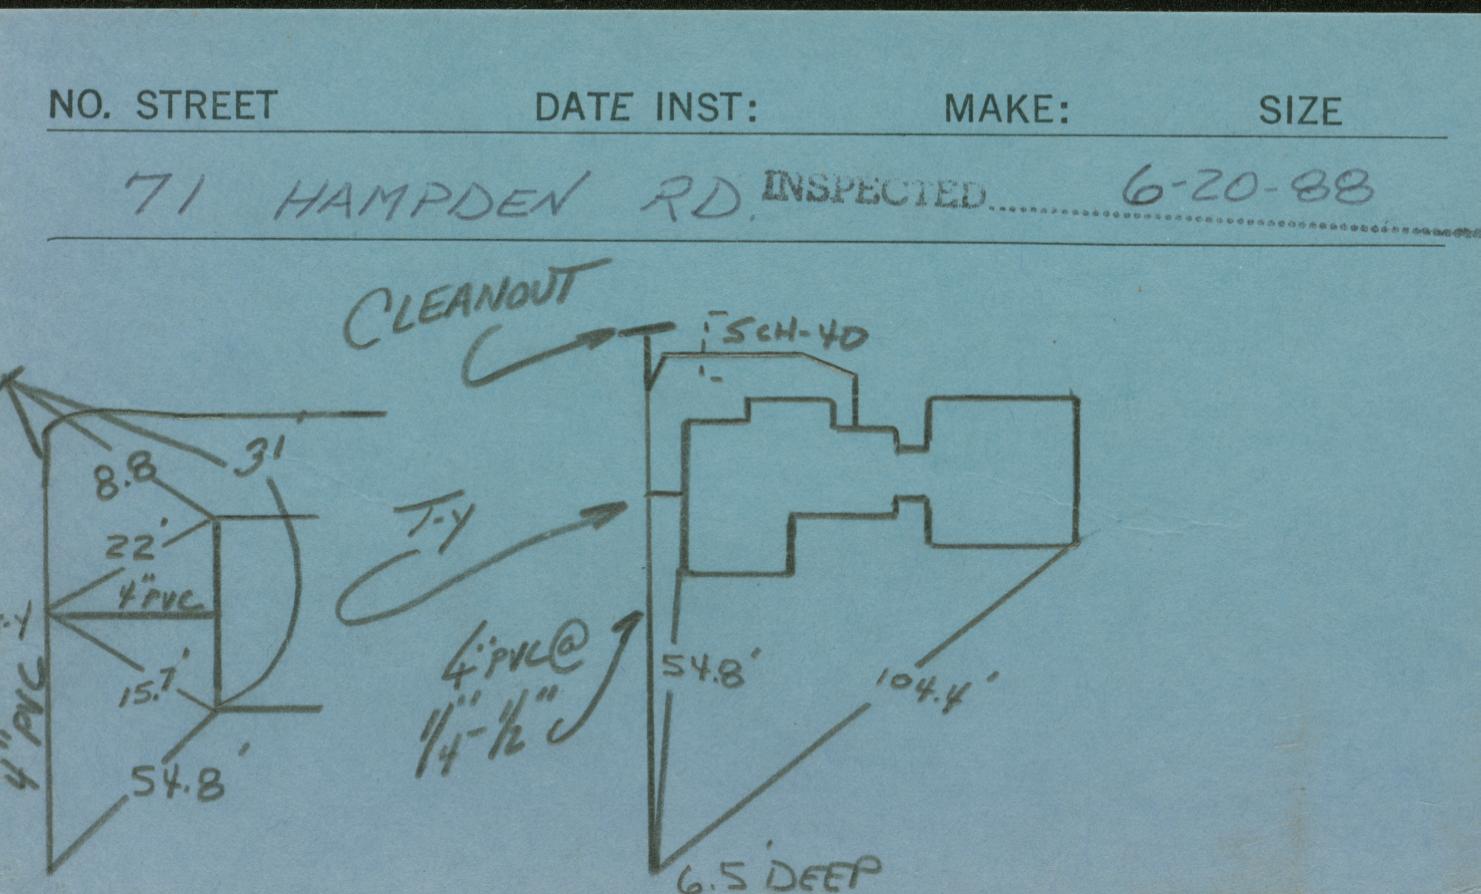 NO. STREET DATE INST: MAKE: SIZE
71 HAMPDEN RD. INSPECTED 6-20-88
CLEANOUT
SCH-40
8.8
31'
22'
4" PVC
T-Y
15.7'
4" PVC
54.8'
4" PVC @
1/4"-1/2"
54.8'
104.4'
6.5' DEEP